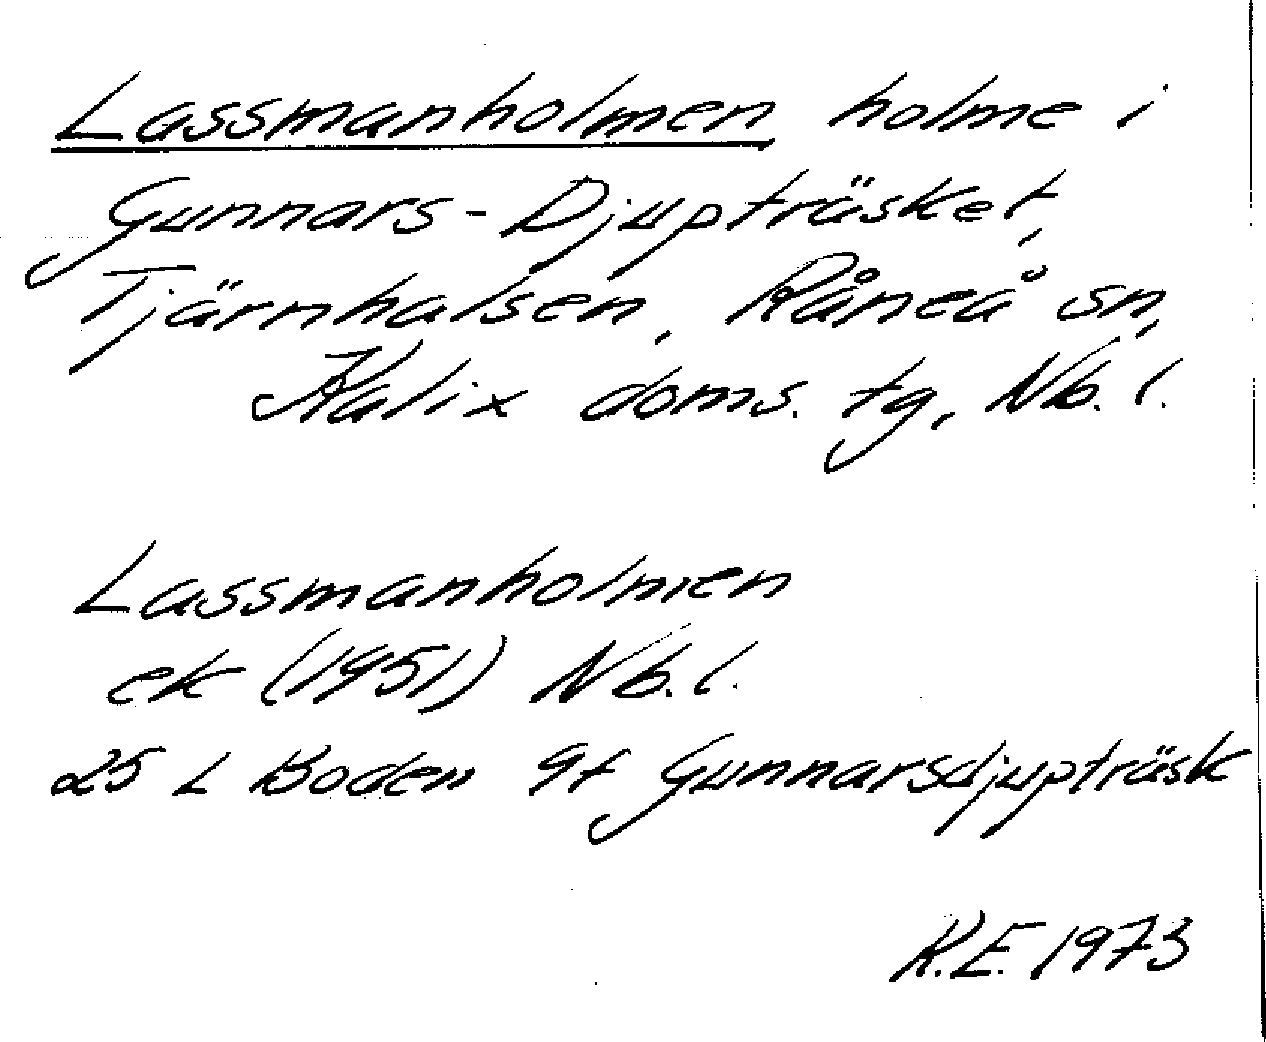 Lassmanholmen, holme i
Gunnars-Djupträsket,
Tjärnhalsen, Råneå sn,
Kalix doms. tg, Nb. l.
Lassmanholmen
ek (1951) Nb. l.
25 L Boden 9f Gunnarsdjupträsk
K.E. 1973